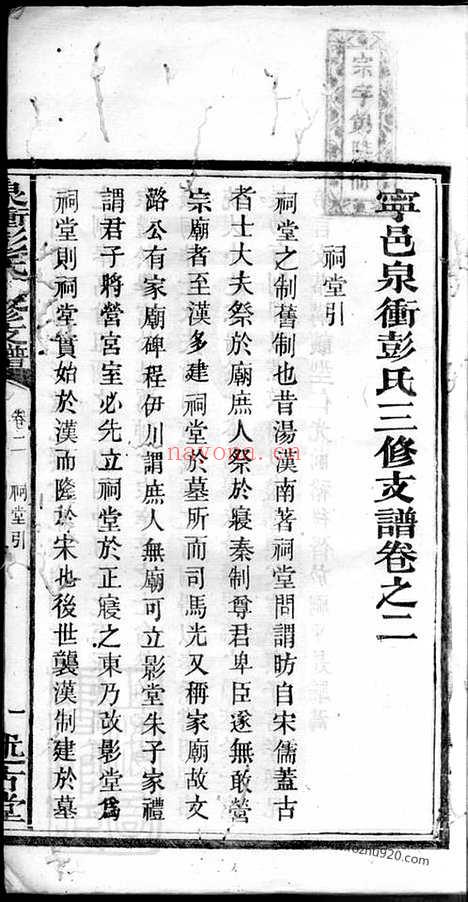 寧邑泉衝彭氏三修支譜卷之二
祠堂引
祠堂之制舊制也昔湯漢南著祠堂問謂昉自宋儒蓋古
者士大夫祭於廟庶人祭於寢秦制尊君卑臣遂無敢營
宗廟者至漢多建祠堂於墓所而司馬光又稱家廟故文
潞公有家廟碑程伊川謂庶人無廟可立影堂朱子家禮
謂君子將營宮室必先立祠堂於正寢之東乃改影堂爲
祠堂則祠堂實始於漢而隆於宋也後世襲漢制建於墓
泉衝彭氏三修支譜
卷二
祠堂引
一
述古堂
nayona.cn
zhu920.com